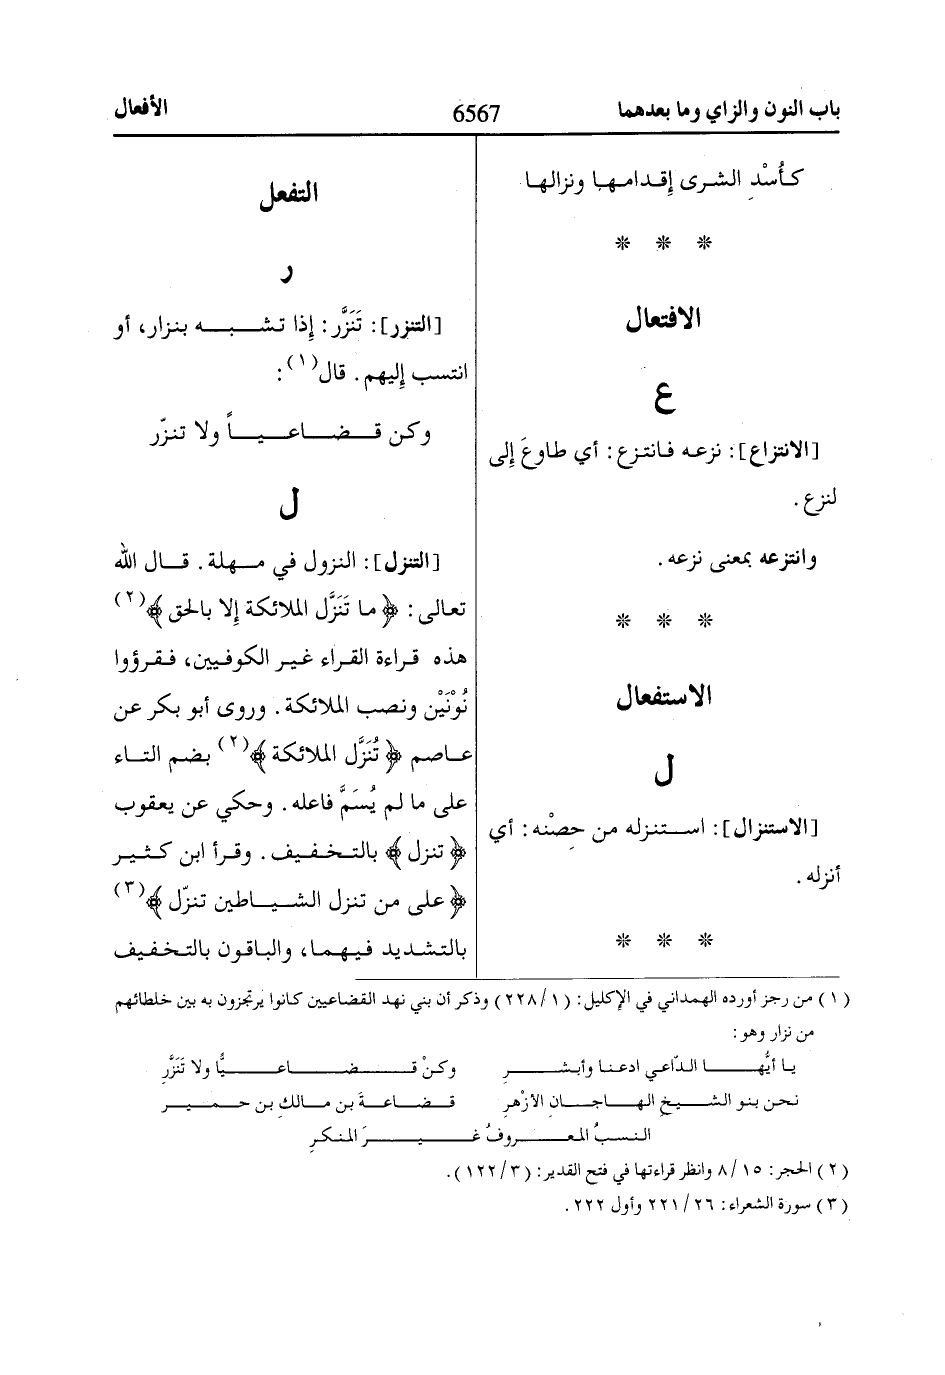 باب النون والزاي وما بعدهما 6567 الأفعال
كأُسْدِ الشرى إِقدامها ونزالها
* * *
الافتعال
ع
[الانتزاع]: نزعه فانتزع: أي طاوعَ إِلى
لنزع.
وانتزعه بمعنى نزعه.
* * *
الاستفعال
ل
[الاستنزال]: استنزله من حِصْنه: أي
أنزله.
* * *
التفعل
ر
[التنزر]: تَنَزَّر: إِذا تشبه بنزار، أو
انتسب إِليهم. قال(١):
وكن قضاعياً ولا تنزّر
ل
[التنزل]: النزول في مهلة. قال الله
تعالى: ﴿ما تَنَزَّل الملائكة إِلا بالحق﴾(٢)
هذه قراءة القراء غير الكوفيين، فقرؤوا
نُوْنَيْن ونصب الملائكة. وروى أبو بكر عن
عاصم ﴿تُنَزَّل الملائكة﴾(٢) بضم التاء
على ما لم يُسَمَّ فاعله. وحكي عن يعقوب
﴿تنزل﴾ بالتخفيف. وقرأ ابن كثير
﴿على من تنزل الشياطين تنزّل﴾(٣)
بالتشديد فيهما، والباقون بالتخفيف
(١) من رجز أورده الهمداني في الإكليل: (٢٢٨/١) وذكر أن بني نهد القضاعيين كانوا يرتجزون به بين خلطائهم
من نزار وهو:
يا أيُّها الدّاعي ادعنا وأبشرِ وكنْ قضاعيًّا ولا تَنَزَّرِ
نحن بنو الشيخ الهاجانِ الأزْهرِ قضاعةَ بن مالكِ بن حميرِ
النسبُ المعروفُ غيرَ المنكرِ
(٢) الحجر: ٨/١٥ وانظر قراءتها في فتح القدير: (١٢٢/٣).
(٣) سورة الشعراء: ٢٢١/٢٦ وأول ٢٢٢.